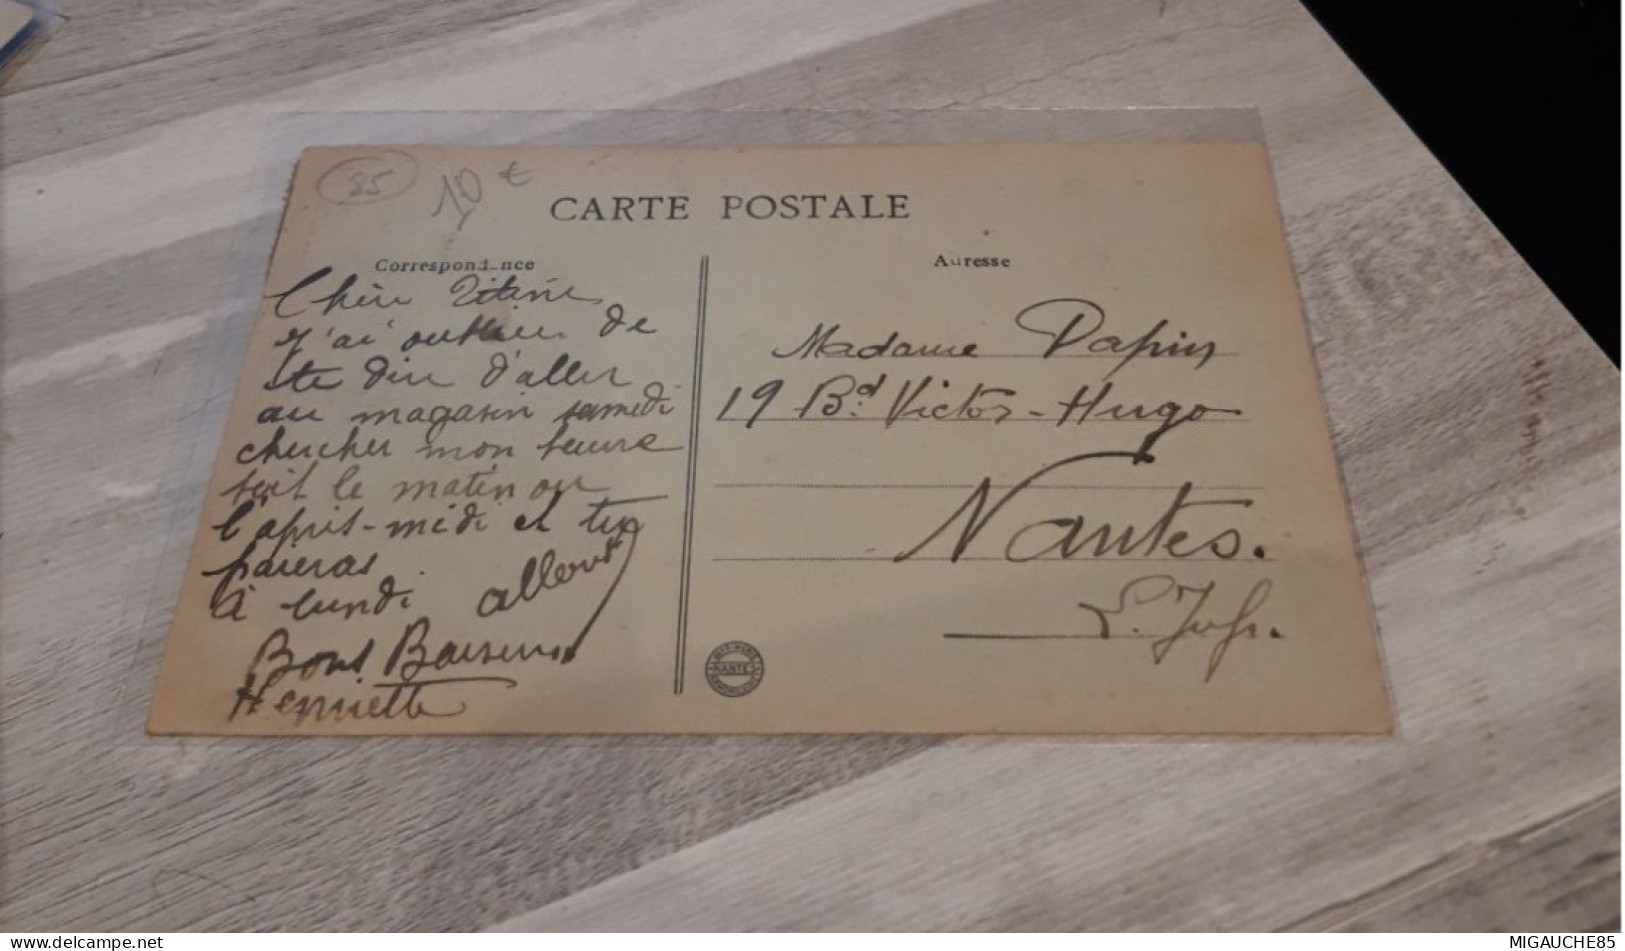 85
10 €
CARTE POSTALE
Correspondance
Adresse
Chère Titine
J'ai oublier de
te dire d'aller
au magasin samedi
chercher mon beurre
soit le matin ou
l'après-midi et tu
paieras
à lundi
Bons Baisers
Henriette
Madame Papin
19 Bd. Victor-Hugo
Nantes.
L. Infr.
NANTES
delcampe.net
MIGAUCHE85